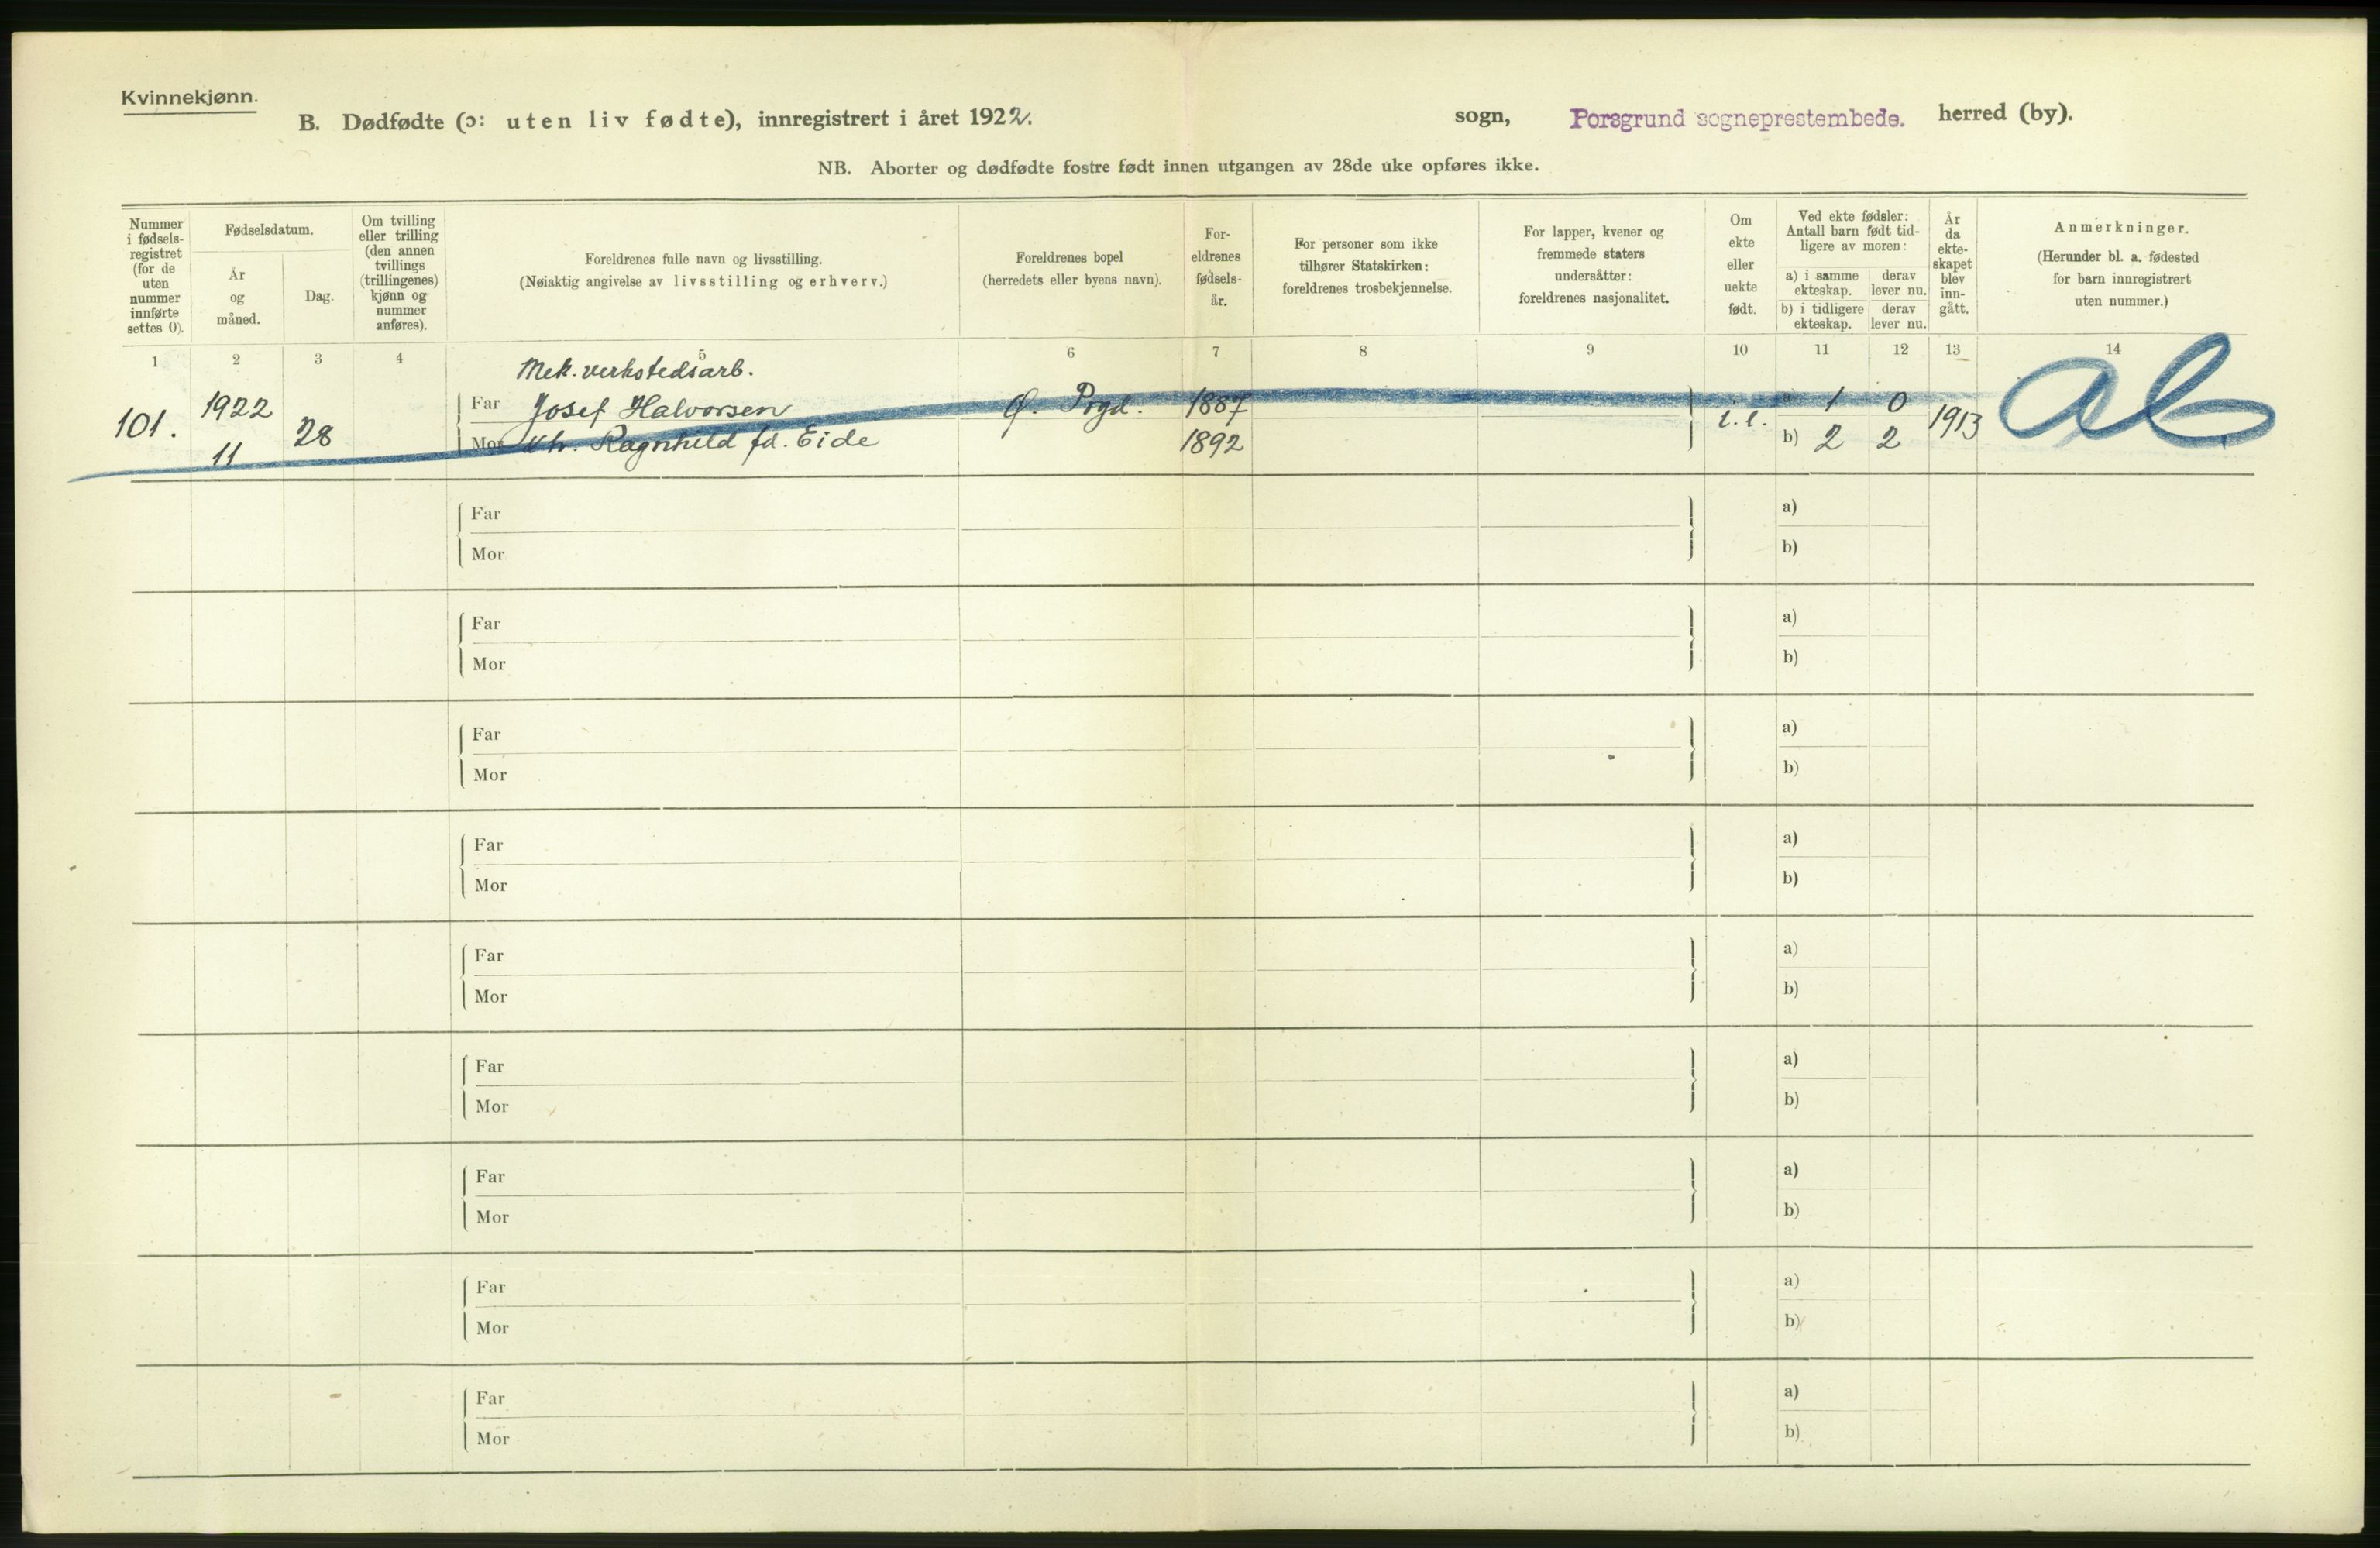 Kvinnekjønn.
B. Dødfødte (ɔ: uten liv fødte), innregistrert i året 1922. sogn, Porsgrund sogneprestembede. herred (by).
NB. Aborter og dødfødte fostre født innen utgangen av 28de uke opføres ikke.
Nummer
i fødsels-
registret
(for de
uten
nummer
innførte
settes 0).
Fødselsdatum.
År
og
måned.
Dag.
Om tvilling
eller trilling
(den annen
tvillings
(trillingenes)
kjønn og
nummer
anføres).
Foreldrenes fulle navn og livsstilling.
(Nøiaktig angivelse av livsstilling og erhverv.)
Foreldrenes bopel
(herredets eller byens navn).
For-
eldrenes
fødsels-
år.
For personer som ikke
tilhører Statskirken:
foreldrenes trosbekjennelse.
For lapper, kvener og
fremmede staters
undersåtter:
foreldrenes nasjonalitet.
Om
ekte
eller
uekte
født.
Ved ekte fødsler:
Antall barn født tid-
ligere av moren:
a) i samme
ekteskap.
derav
lever nu.
b) i tidligere
ekteskap.
derav
lever nu.
År
da
ekte-
skapet
blev
inn-
gått.
Anmerkninger.
(Herunder bl. a. fødested
for barn innregistrert
uten nummer.)
1 2 3 4 5 6 7 8 9 10 11 12 13 14
Mek. verkstedsarb.
101. 1922 11 28
Far Josef Halvorsen Ø. Prgd. 1887 a) 1 0
Mor Ragnhild fd. Eide 1892 b) 2 2
1913
Far a)
Mor b)
Far a)
Mor b)
Far a)
Mor b)
Far a)
Mor b)
Far a)
Mor b)
Far a)
Mor b)
Far a)
Mor b)
Far a)
Mor b)
Far a)
Mor b)